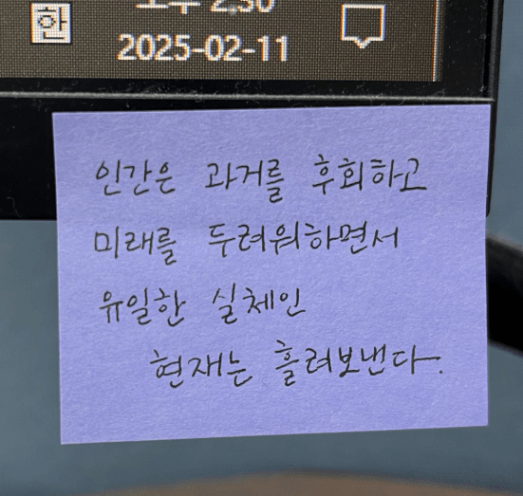 한
오후 2:30
2025-02-11
인간은 과거를 후회하고
미래를 두려워하면서
유일한 실체인
현재는 흘려보낸다.